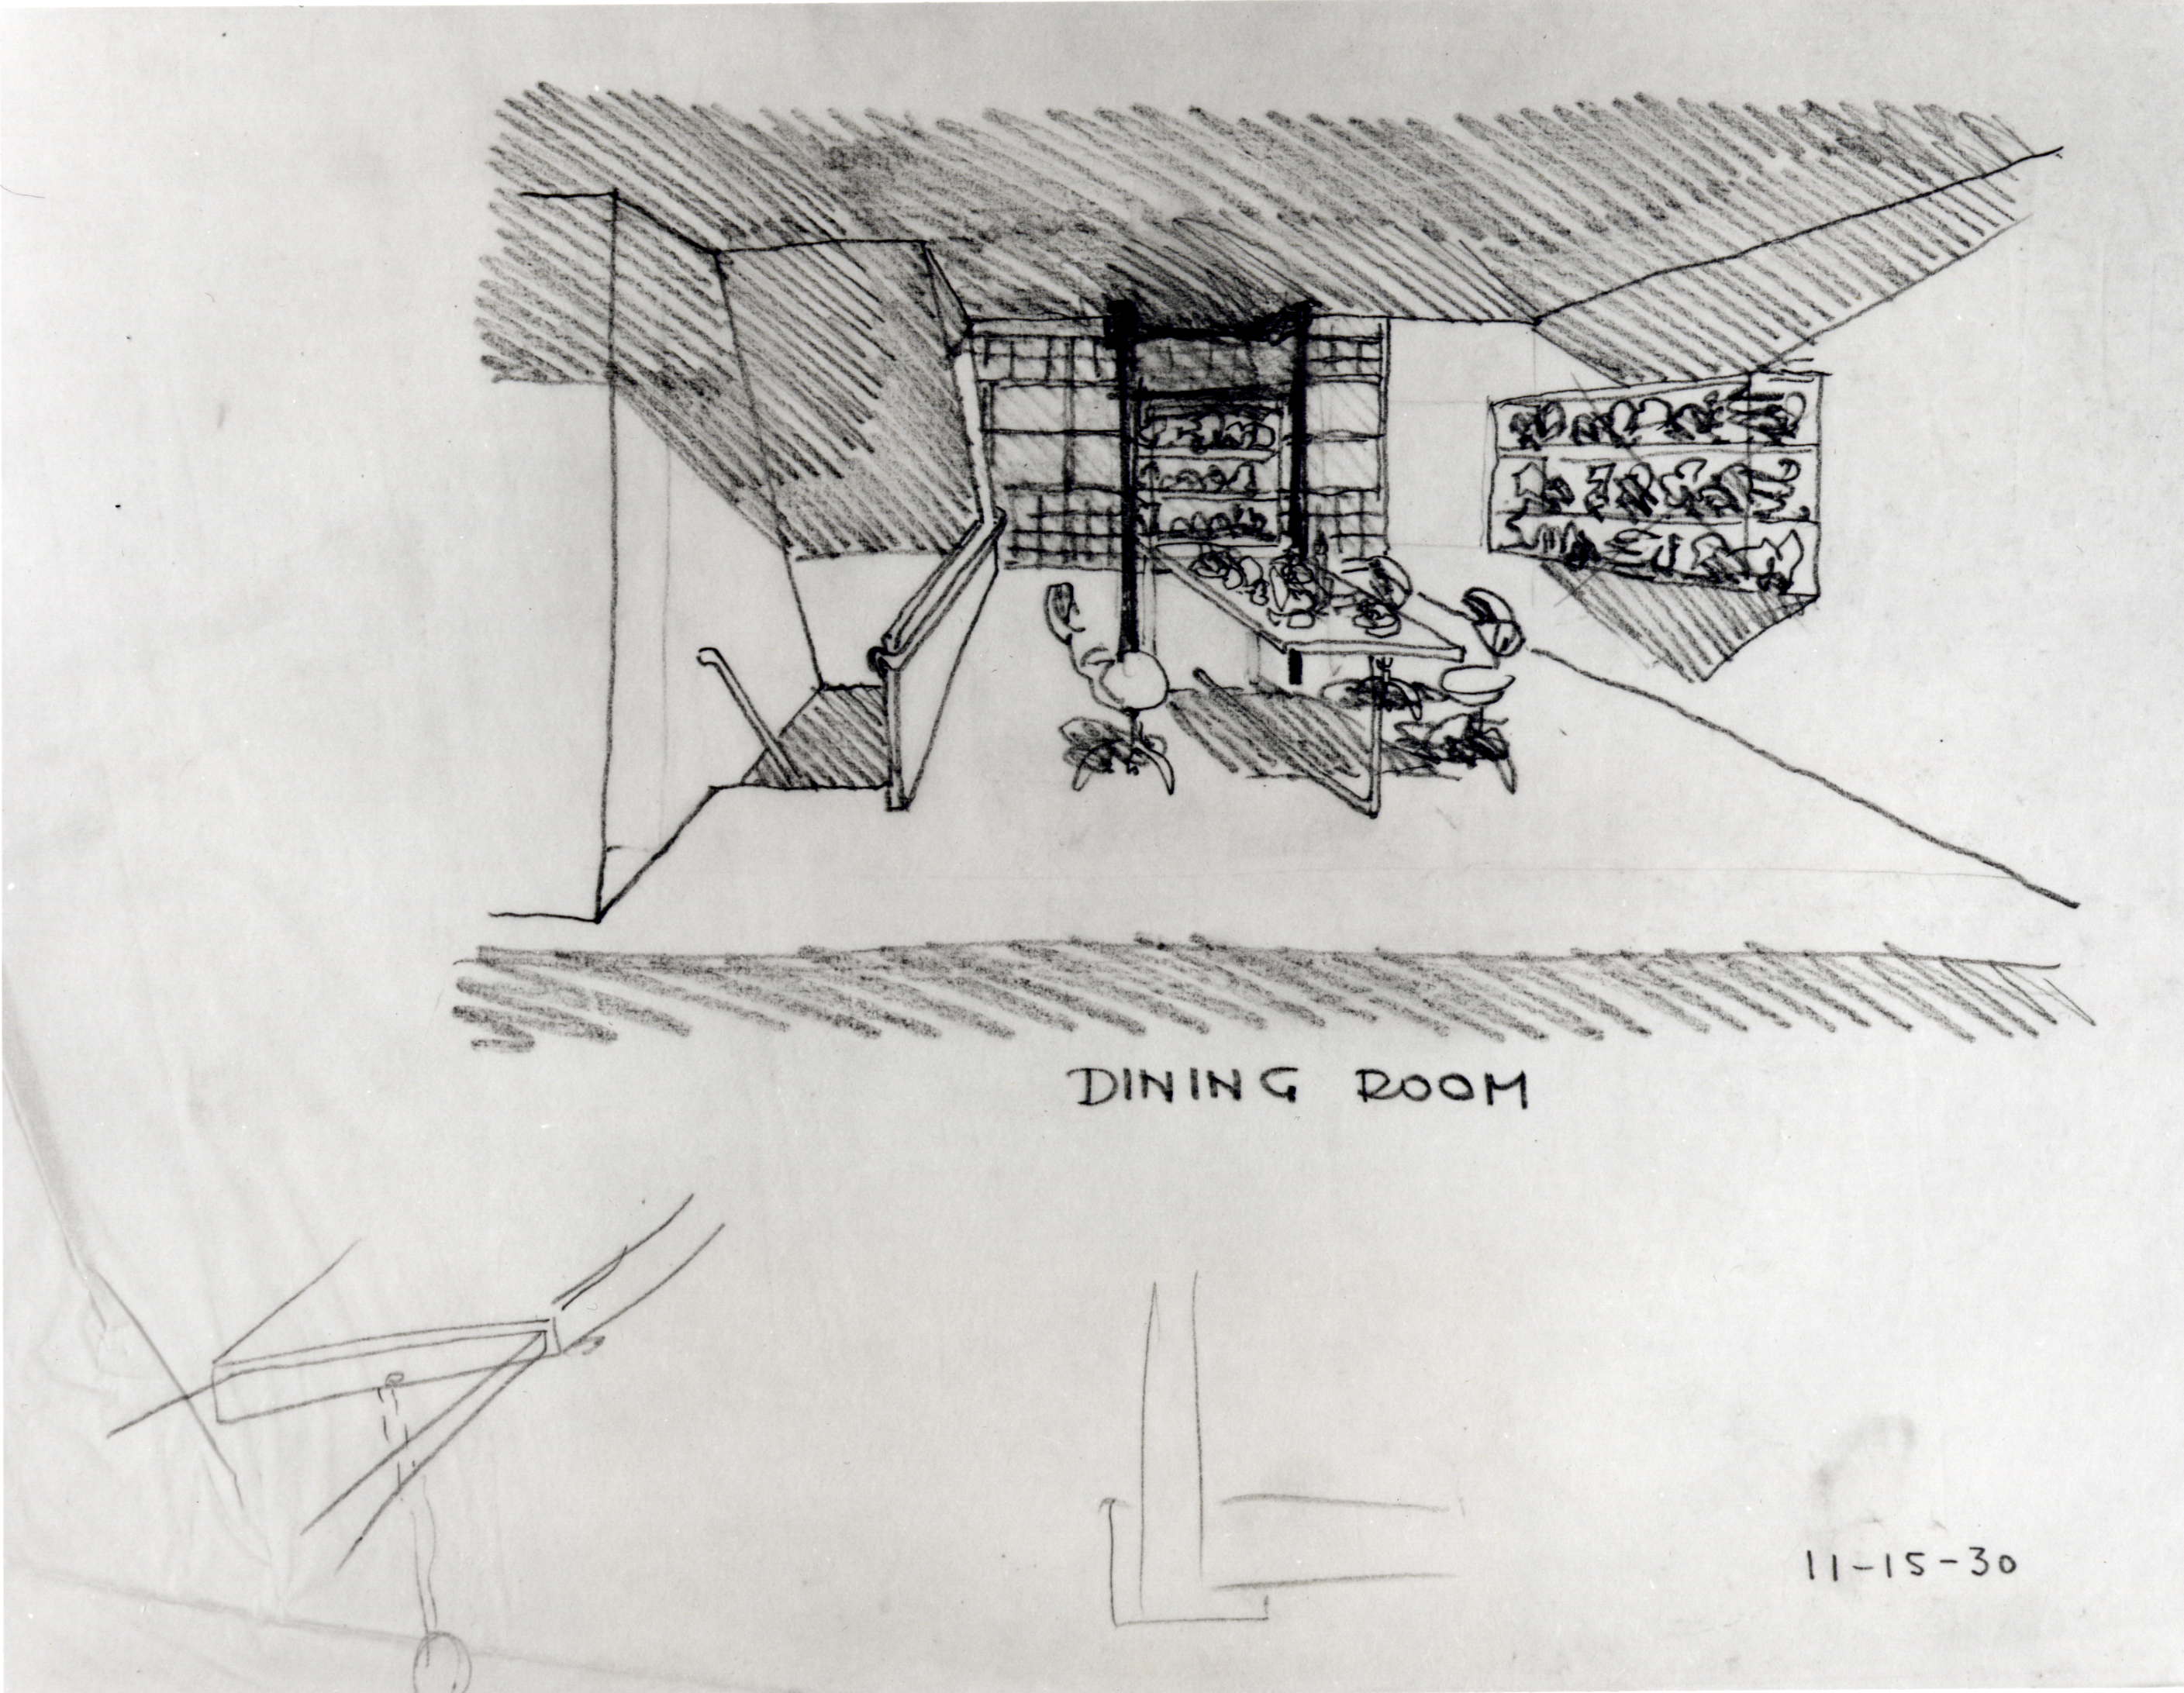 DINING ROOM
11-15-30